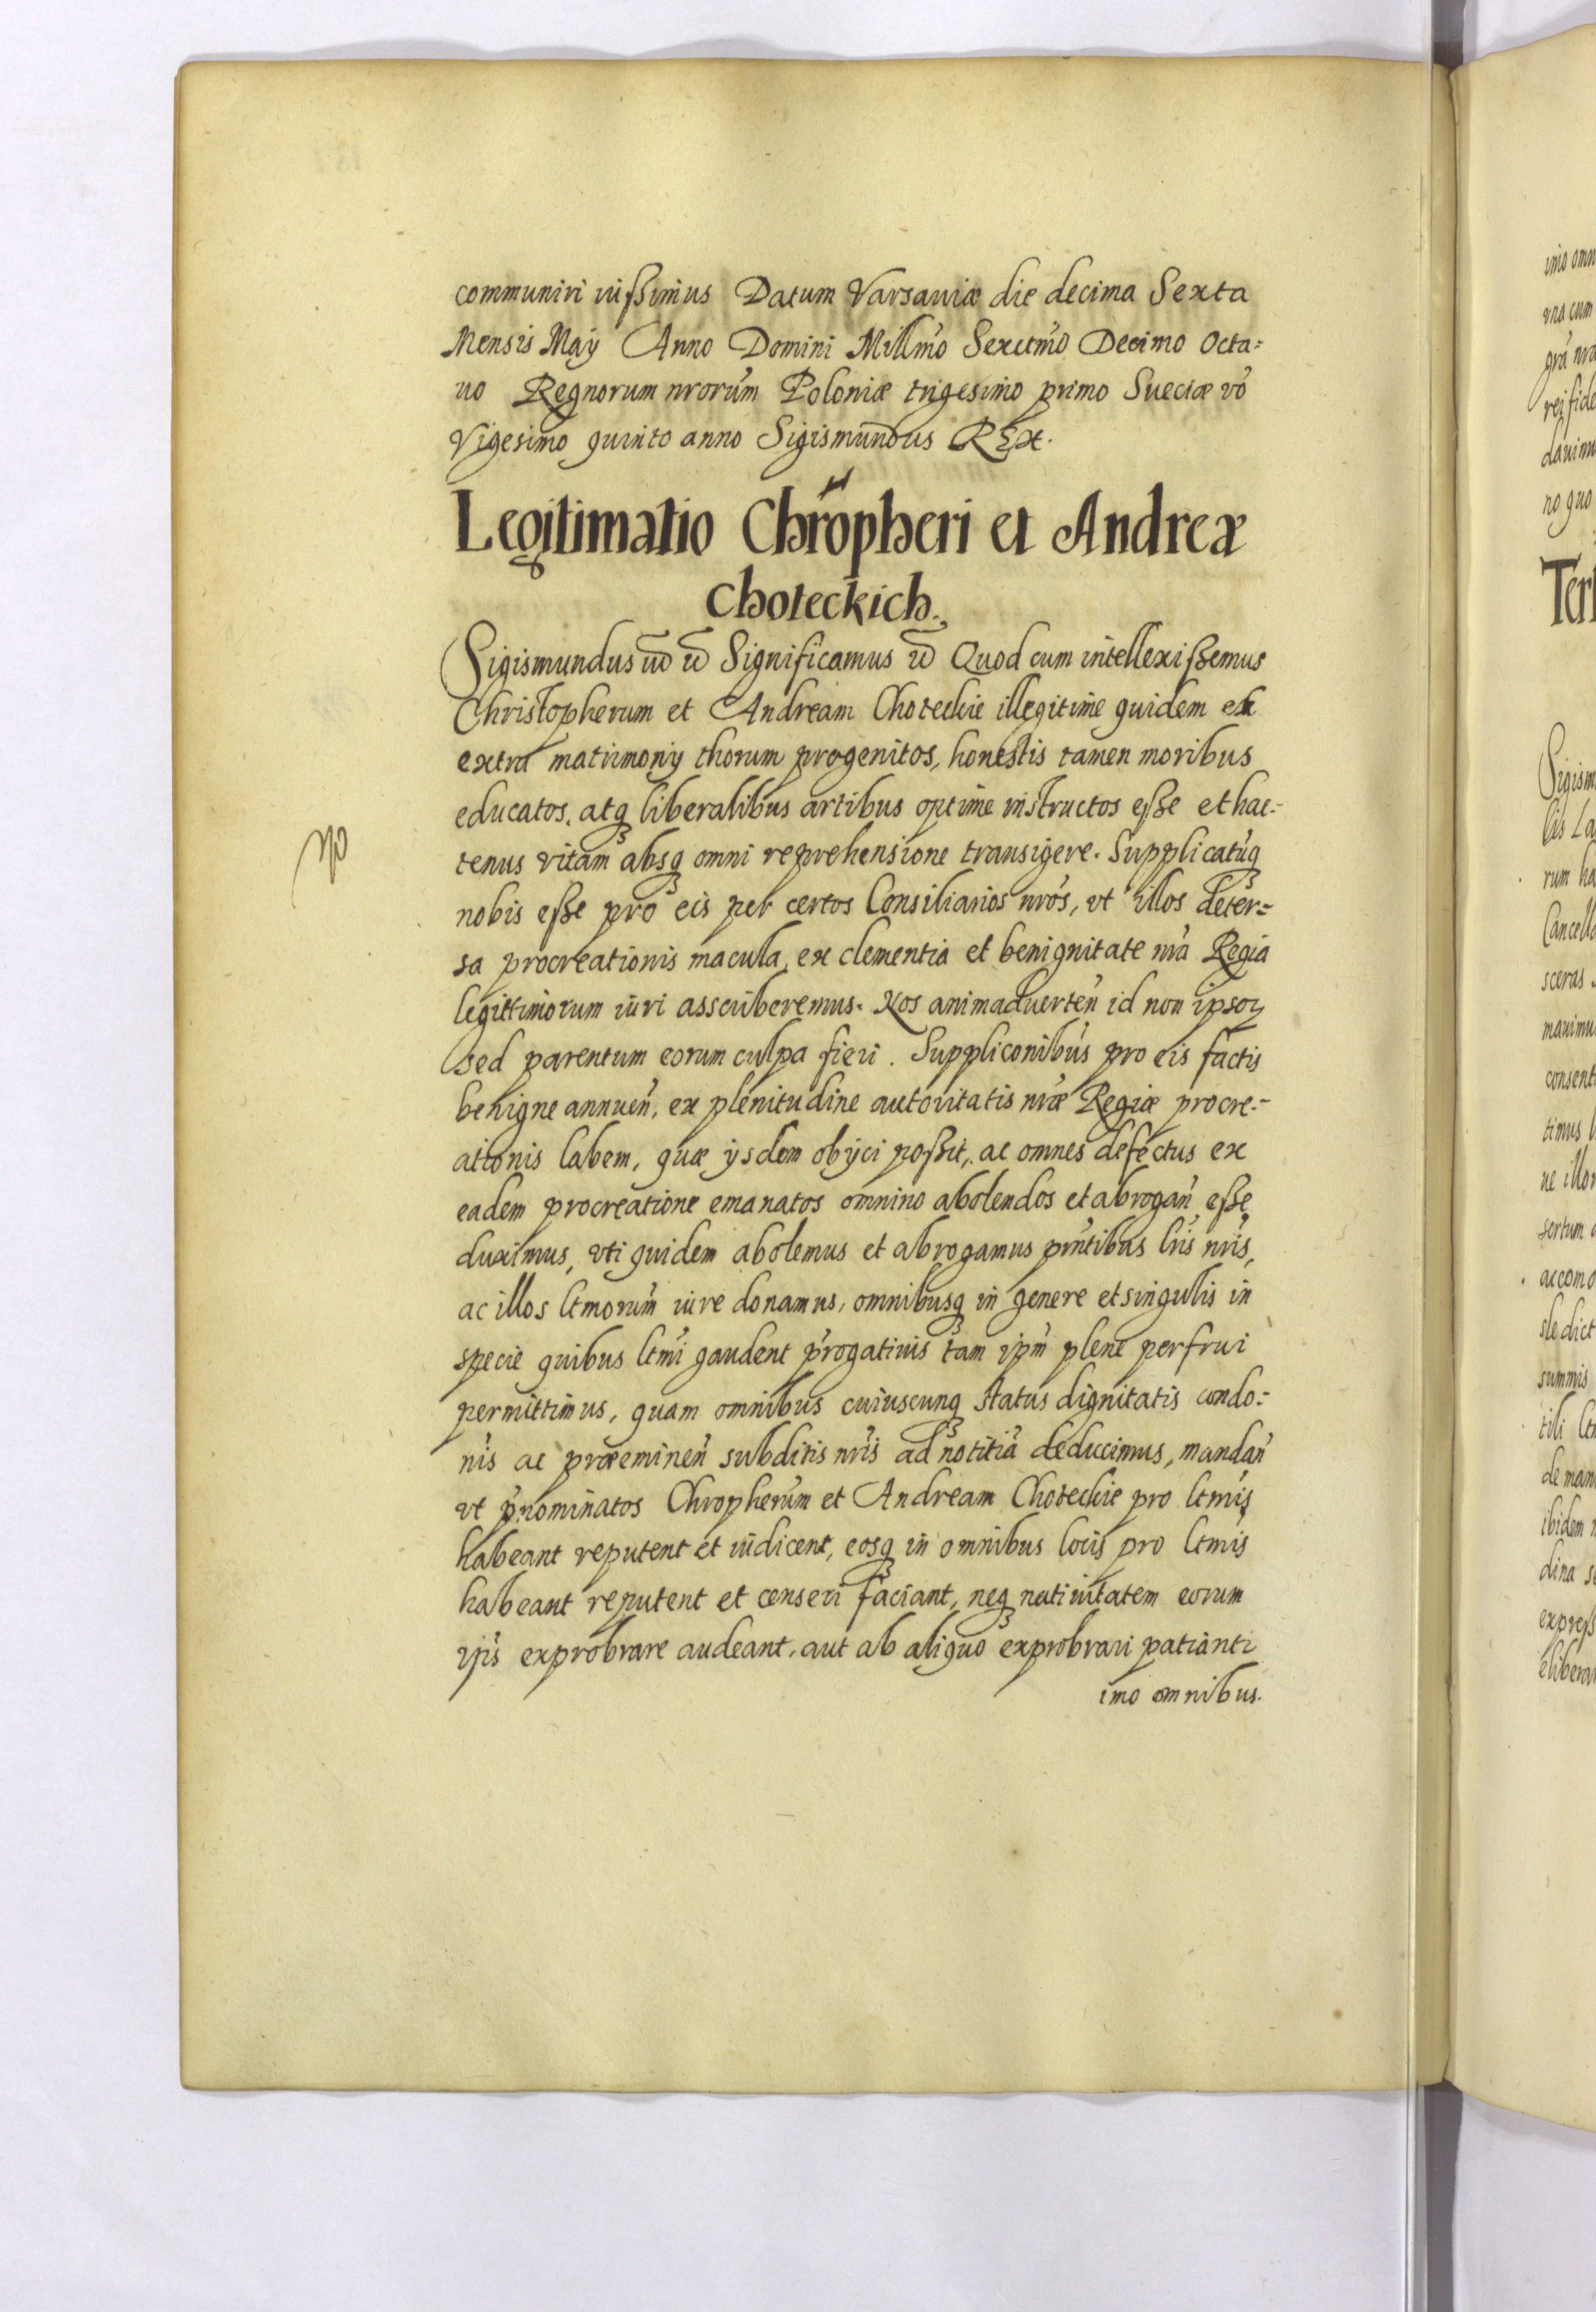 communiri iussimus Datum Varsaviæ die decima Sexta
Mensis Maÿ Anno Domini Millmo Sexctmo Decimo Octa=
uo Regnorum nrorum Poloniæ trigesimo primo Sueciæ vo
Vigesimo quinto anno Sigismundus REx.
Legitimatio Chropheri et Andreæ
Choteckich.
Sigismundus Significamus Quod cum intellexissemus
Christopherum et Andream Choteckie illegitime quidem ex
extra matrimonÿ thorum progenitos, honestis tamen moribus
educatos, atq liberalibus artibus optime instructos esse et hac=
tenus vitam absq omni reprehensione transigere. Supplicatuq
nobis esse pro eis per certos Consiliarios nros, vt illos deter=
sa procreationis macula, ex clementia et benignitate nra Regia
legittimorum iuri asscriberemus. Nos animaduerten id non ipsoꝝ
sed parentum eorum culpa fieri. Suppliconibus pro eis factis
benigne annuen, ex plenitudine autoritatis nræ Regiæ procre=
ationis labem, quæ ÿsdem obÿci possit, ac omnes defectus ex
eadem procreatione emanatos omnino abolendos et abrogan esse
duximus, vti quidem abolemus et abrogamus pntibus lris nris,
ac illos ltmorum iure donamus, omnibusq in genere et singulis in
specie quibus ltmi gaudent progatiuis tam ipm plene perfrui
permittimus, quam omnibus cuiuscunq status dignitatis condo=
nis ac præeminen subditis nris ad notitia deducimus, mandan
vt pnominatos Chropherum et Andream Choteckie pro ltmis
habeant reputent et iudicent, eosq in omnibus locis pro ltmis
habeant reputent et censeri faciant, neq natiuitatem eorum
ipis exprobrare audeant, aut ab aliquo exprobrari patianti
imo omnibus.